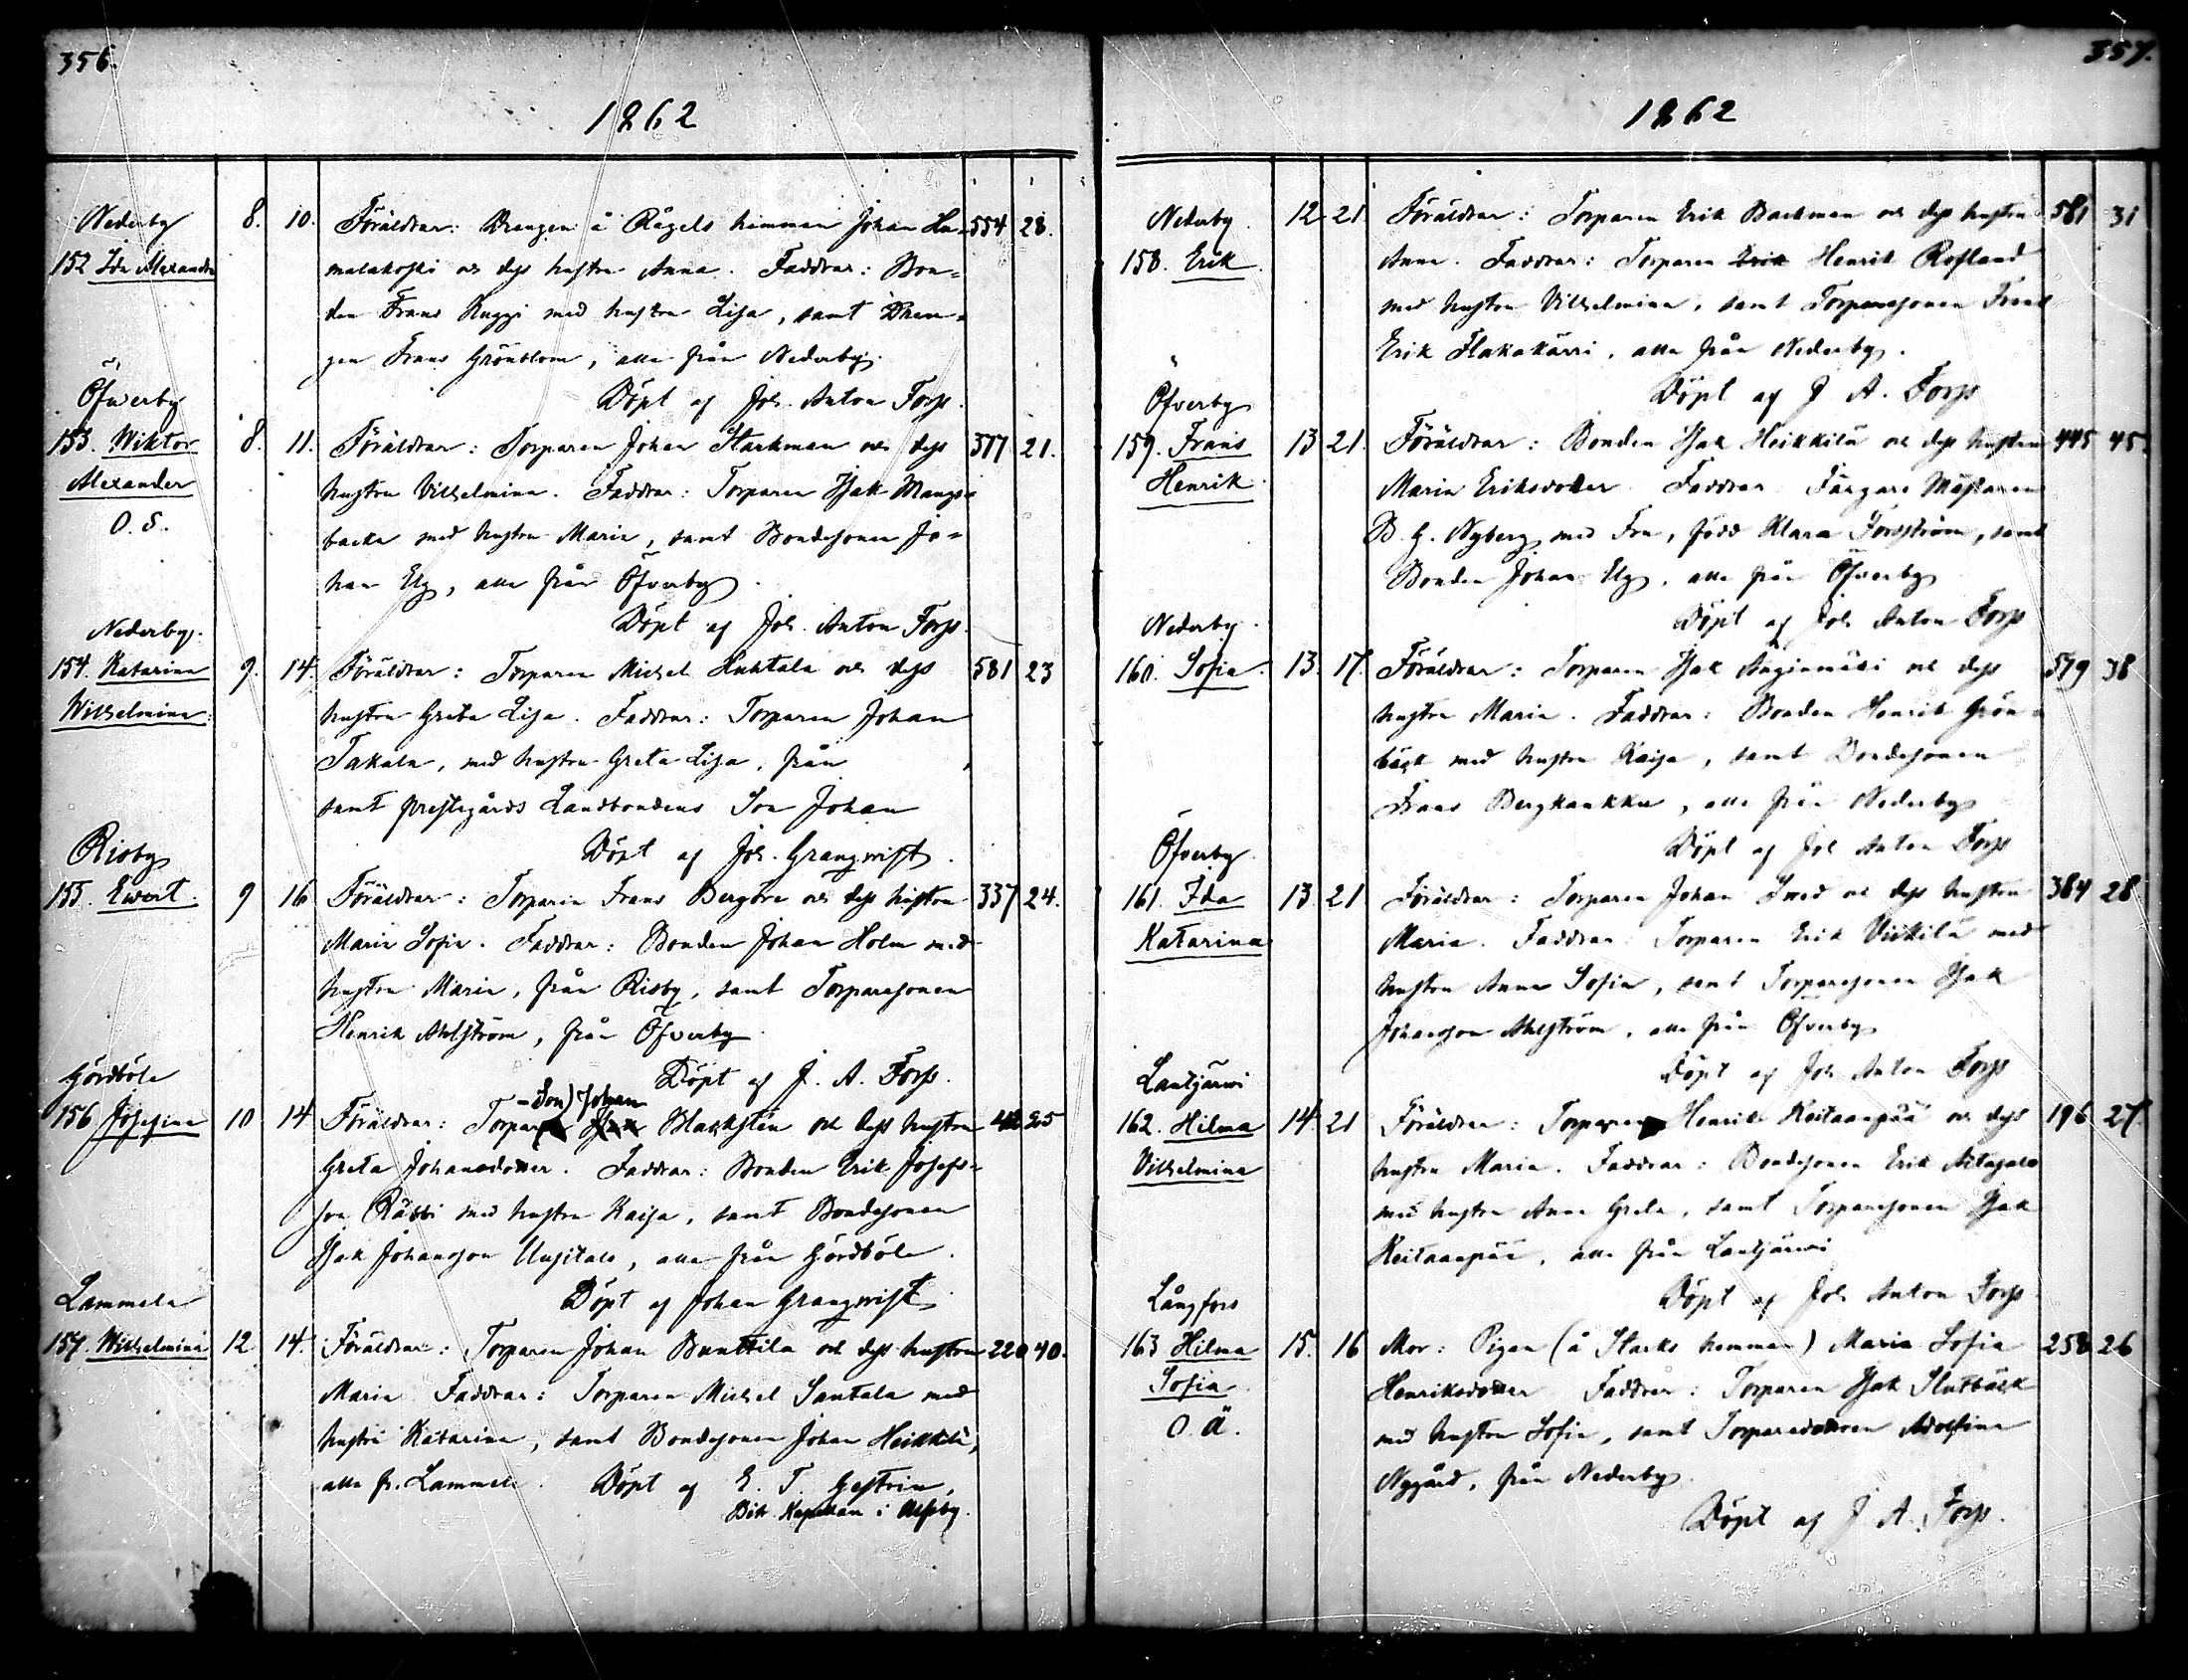 356.
1862
Nederby 8. 10. Föräldrar: Drengen å Rågels hemman Johan Ha- 554 28.
152 Ida Alexandra malakoski och dess hustru Anna. Faddrar: Bon=
den Frans Knggi med hustru Lisa, samt Dren=
gen Frans Grönblom, alla från Nederby.
Öfverby Döpt af Joh. Anton Forss.
153. Wiktor 8. 11. Föräldrar: Torparen Johan Starkman och dess 377 21.
Alexander hustru Vilhelmina. Faddrar: Torparen Isak Mangs=
O. S. backa med hustru Maria, samt Bondesonen Jo=
han Elg, alla från Öfverby.
Nederby. Döpt af Joh. Anton Forss.
154. Katarina 9. 14. Föräldrar: Torparen Michel Huhtala och dess 581 23
Wilhelmina. hustru Greta Lisa. Faddrar: Torparen Johan
Takala, med hustru Greta Lisa, från
samt prestegårds Landbondens Son Johan
Risby Döpt af Joh. Granqvist.
155. Ewert. 9 16 Föräldrar: Torparen Frans Bergbro och dess hustru 337 24.
Maria Sofia. Faddrar: Bonden Johan Holm med
hustru Maria, från Risby, samt Torparesonen
Henrik Ahlström, från Öfverby
Gördböle Döpt af J. A. Forss.
-Son) Johan
156 Josefina 10 14 Föräldrar: Torpare Blackstén och dess hustru 25
Greta Johansdotter. Faddrar: Bonden Erik Josefs=
son Råbbi med hustru Kaisa, samt Bondesonen
Isak Johansson Uusitalo, alla från Gördböle.
Lammela Döpt af Johan Granqvist
157. Wilhelmina 12 14. Föräldrar: Torparen Johan Bunttila och dess hustru 220 40.
Maria Faddrar: Torparen Michel Santala med
hustru Katarina, samt Bondesonen Johan Heikkilä,
alla fr. Lammela. Döpt af E. T. Gestrin,
Bitr. Kapellan i Ulfsby.
357.
1862
Nederby. 12 21 Föräldrar: Torparen Erik Backman och dess hustru 581 31
158. Erik. Anna. Faddrar: Torparen Erik Henrik Rosland
med hustru Vilhelmina, samt Torparesonen Frans
Erik Flakakärri, alla från Nederby.
Öfverby Döpt af J A. Forss
159. Frans 13 21. Föräldrar: Bonden Isak Heikkilä och dess hustru 445 45.
Henrik. Maria Eriksdotter Faddrar Färgare Mästaren
B. G. Nyberg med Fru, född Klara Forsström, samt
Bonden Johan Elg, alla från Öfverby
Nederby. Döpt af Joh Anton Forss
160. Sofia. 13. 17. Föräldrar: Torparen Isak och dess 579 38
hustru Maria. Faddrar: Bonden Henrik Grön=
bäck med hustru Kaisa, samt Bondesonen
Frans Bergkaukku, alla från Nederby
Öfverby. Döpt af Joh Anton Forss
161. Ida 13. 21 Föräldrar: Torparen Johan Smed och dess hustru 384 28
Katarina Maria. Faddrar: Torparen Erik Vickilä med
hustru Anna Sofia, samt Torparesonen Isak
Johansson Ahlström, alla från Öfverby
Lautjärwi Döpt af Joh Anton Forss
162. Hilma 14. 21 Föräldrar: Torparen Henrik Keitaanpää och dess 196 27.
Vilhelmina hustru Maria. Faddrar: Bondesonen Erik Alitalo
med hustru Anna Greta, samt Torparesonen Isak
Keitaanpää, alla från Lautjärwi
Långfors Döpt af Joh Anton Forss
163 Hilma 15. 16 Mor: Pigan (å Starks hemman) Maria Sofia 258 26
Sofia. Henriksdotter Faddrar: Torparen Isak Slutbäck
O. Ä. med hustru Sofia, samt Torparedottren Adolfina
Nygård, från Nederby
Döpt af J A. Forss.